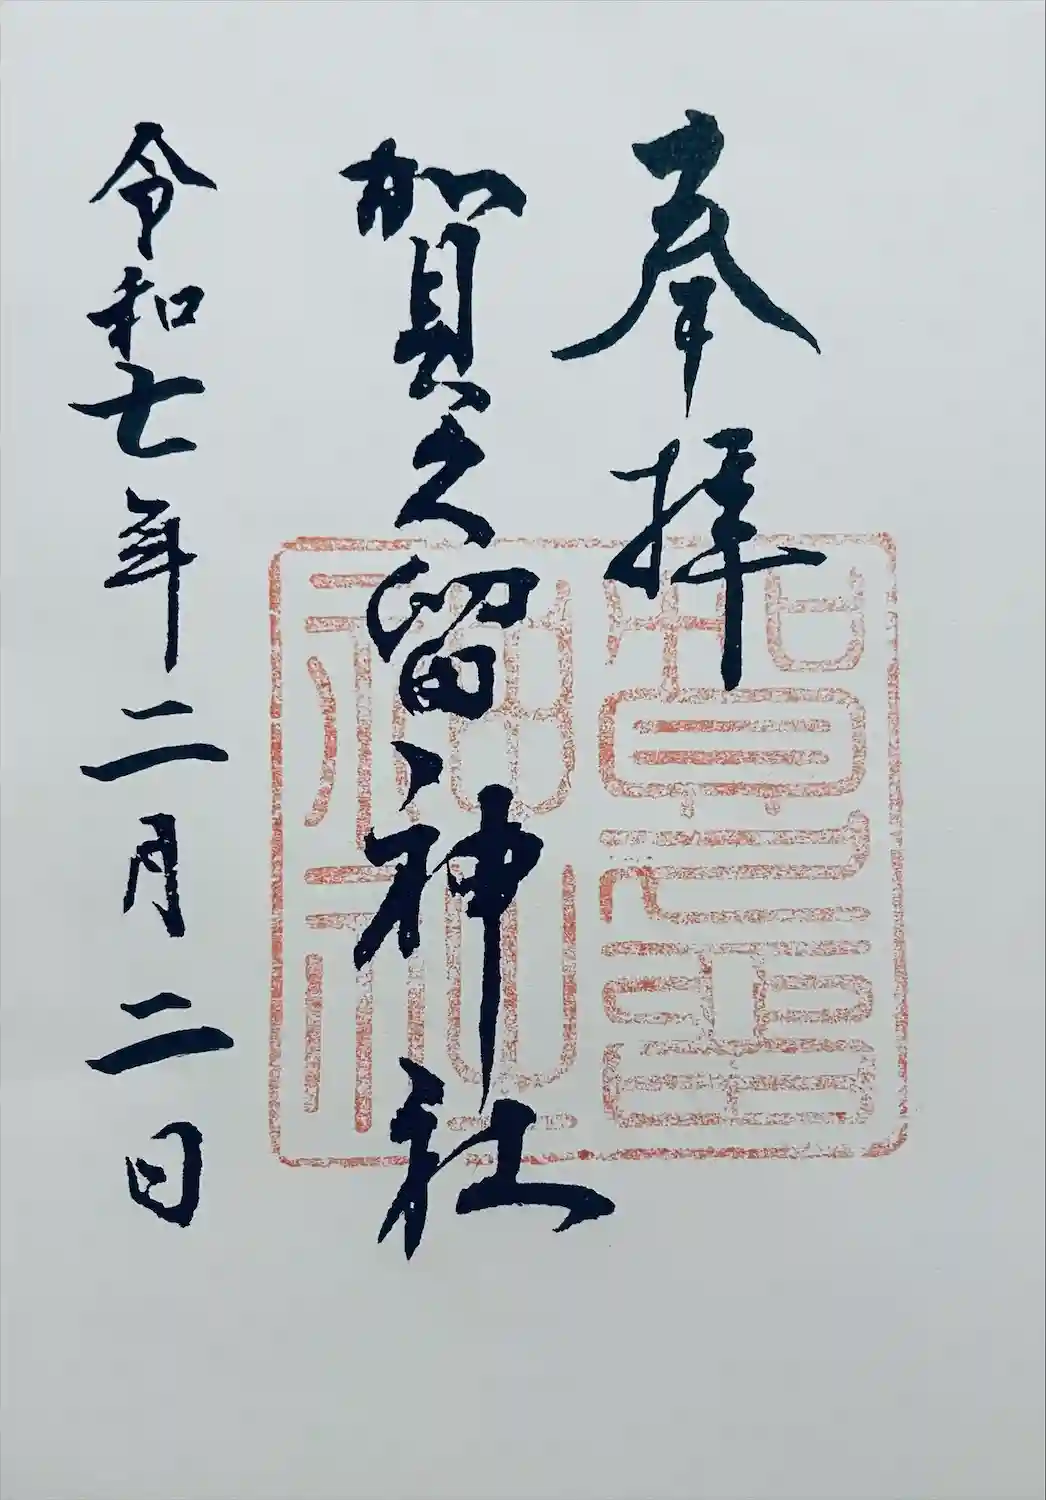 奉拝
加賀久留神社
令和七年二月二日
賀久留
神社